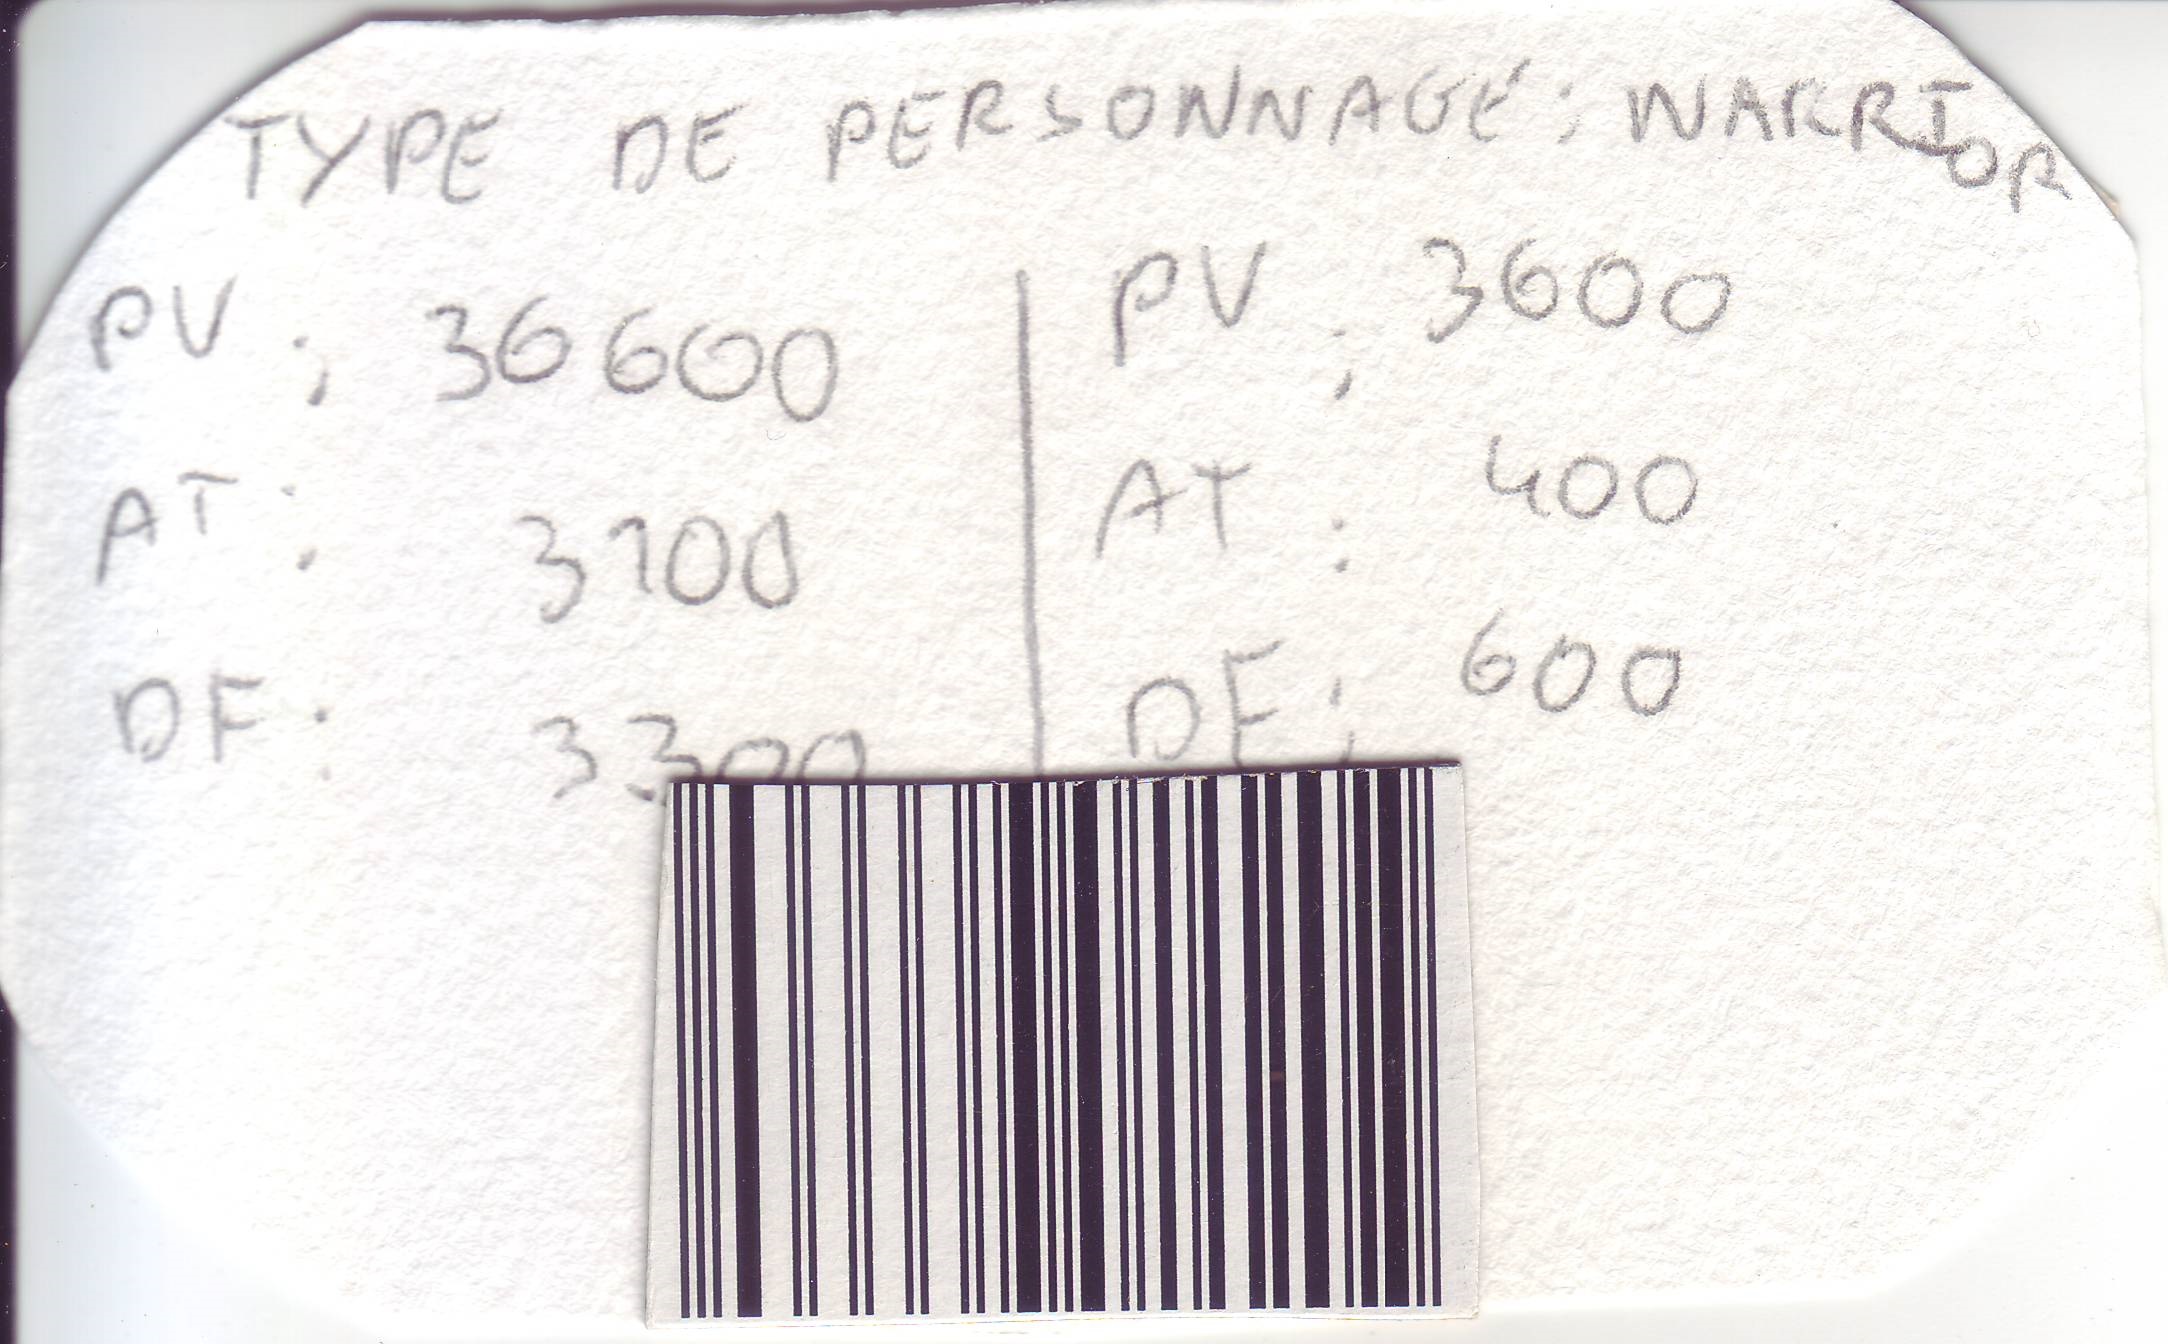 TYPE DE PERSONNAGE : WARRIOR
PV : 36600
AT : 3100
DF : 3300
PV : 3600
AT : 400
DF : 600